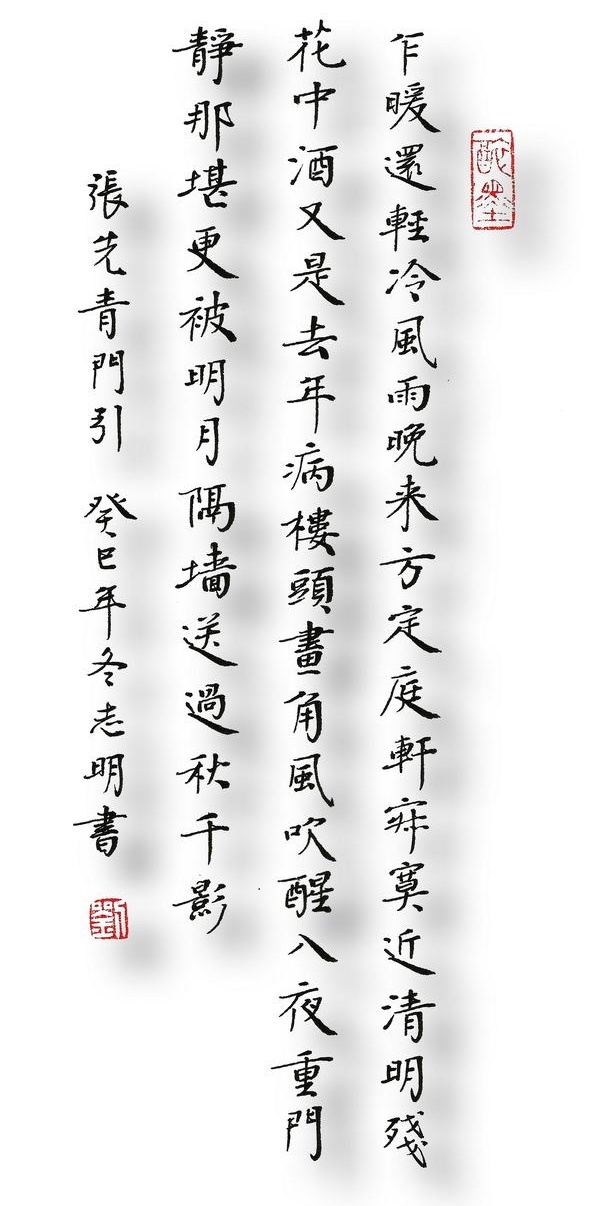 乍暖還輕冷風雨晚来方定庭軒寂寞近清明殘
花中酒又是去年病樓頭畫角風吹醒入夜重門
靜那堪更被明月隔墙送過秋千影
張先青門引 癸巳年冬志明書
劉